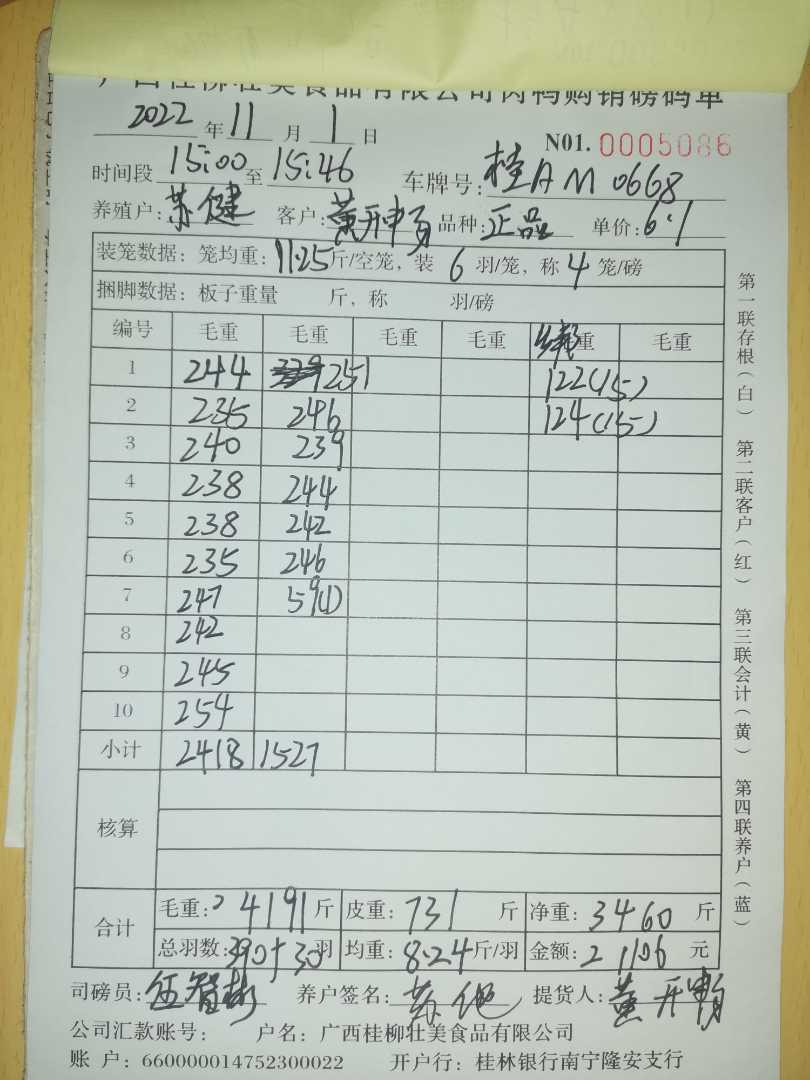 广西桂柳壮美食品有限公司肉鸭购销磅码单
2022 年 11 月 1 日 N01. 0005086
时间段 15:00 至 15:46 车牌号: 桂AM0668
养殖户: 苏健 客户: 黄开 品种: 正品 单价: 6.1
装笼数据: 笼均重: 11.25 斤/空笼, 装 6 羽/笼, 称 4 笼/磅
捆脚数据: 板子重量 斤, 称 羽/磅
编号 毛重 毛重 毛重 毛重 重 毛重
1 244 251 122(15)
2 235 246 124(15)
3 240 239
4 238 244
5 238 242
6 235 246
7 247 59(1)
8 242
9 245
10 254
小计 2418 1527
核算
合计 毛重: 4191 斤 皮重: 731 斤 净重: 3460 斤
总羽数: 390+30 羽 均重: 8.24 斤/羽 金额: 21106 元
司磅员: 伍智彬 养户签名: 苏 提货人: 黄开
公司汇款账号: 户名: 广西桂柳壮美食品有限公司
账户: 660000014752300022 开户行: 桂林银行南宁隆安支行
第一联存根(白) 第二联客户(红) 第三联会计(黄) 第四联养户(蓝)